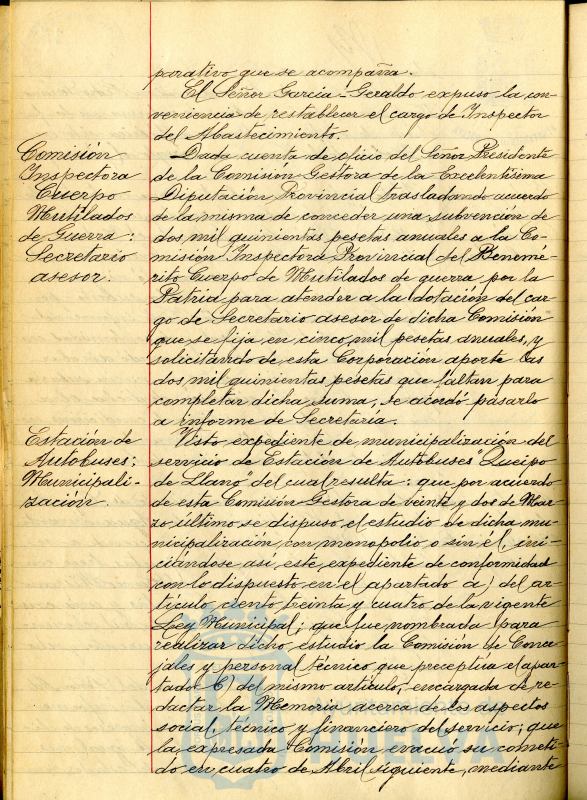 parativo que se acompaña.
El Señor García-Geraldo, expuso la con-
veniencia de restablecer el cargo de Inspector
del Abastecimiento.
Comisión
Inspectora
Cuerpo
Mutilados
de Guerra:
Secretario
asesor.
Dada cuenta de oficio del Señor Presidente
de la Comisión Gestora de la Excelentísima
Diputación Provincial trasladando acuerdo
de la misma de conceder una subvención de
dos mil quinientas pesetas anuales a la Co-
misión Inspectora Provincial del Benemé-
rito Cuerpo de Mutilados de guerra por la
Patria para atender a la dotación del car-
go de Secretario asesor de dicha Comisión
que se fija en cinco mil pesetas anuales, y
solicitando de esta Corporación aporte las
dos mil quinientas pesetas que faltan para
completar dicha suma, se acordó pasarlo
a informe de Secretaría.
Estación de
Autobuses:
Municipali-
zación.
Visto expediente de municipalización del
servicio de Estación de Autobuses "Queipo
de Llano" del cual resulta: que por acuerdo
de esta Comisión Gestora de veinte y dos de Mar-
zo último se dispuso el estudio de dicha mu-
nicipalización con monopolio o sin él, ini-
ciándose así este expediente de conformidad
con lo dispuesto en el apartado a) del ar-
tículo ciento treinta y cuatro de la vigente
Ley Municipal; que fue nombrada para
realizar dicho estudio la Comisión de Conce-
jales y personal técnico que preceptúa el apar-
tado b) del mismo artículo, encargada de re-
dactar la Memoria acerca de los aspectos
social, técnico y financiero del servicio; que
la expresada Comisión evacuó su cometi-
do en cuatro de Abril siguiente, mediante
HUELVA